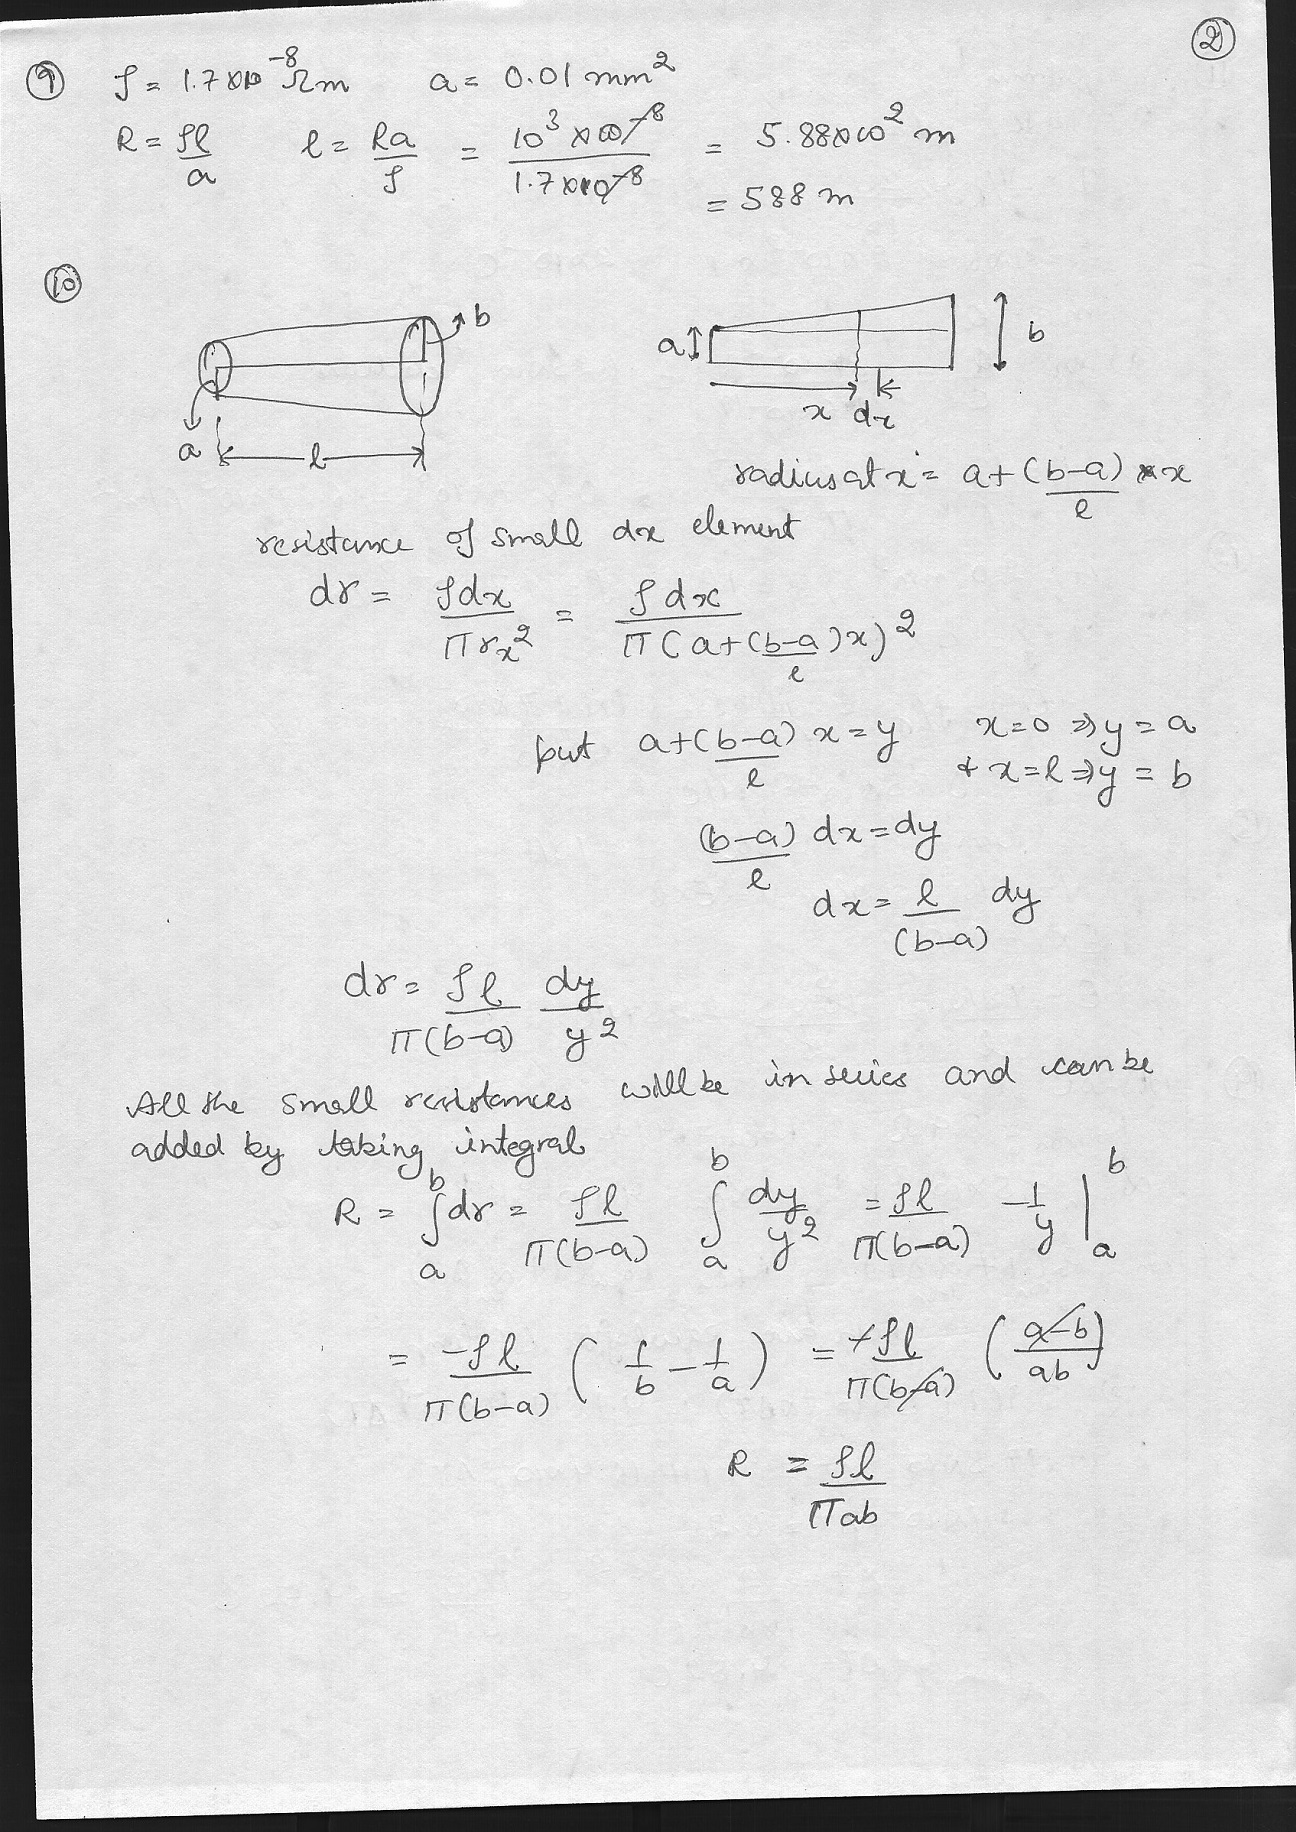 ②
⑨ ρ = 1.7×10⁻⁸ Ωm a = 0.01 mm²
R = ρl/a l = Ra/ρ = 10³ × 10⁻⁸ / 1.7×10⁻⁸ = 5.88×10² m
= 588 m
⑩
b
a
l
a
b
x dx
radius at x = a + (b-a)/l × x
resistance of small dx element
dr = ρdx/πrₓ² = ρdx/π(a+(b-a)/l x)²
put a+(b-a)/l x = y x=0 ⇒ y = a
& x=l ⇒ y = b
(b-a)/l dx = dy
dx = l/(b-a) dy
dr = ρl/π(b-a) dy/y²
All the small resistances will be in series and can be
added by taking integral
R = ∫ₐᵇ dr = ρl/π(b-a) ∫ₐᵇ dy/y² = ρl/π(b-a) -1/y |ₐᵇ
= -ρl/π(b-a) (1/b - 1/a) = +ρl/π(b-a) (a-b/ab)
R = ρl/πab